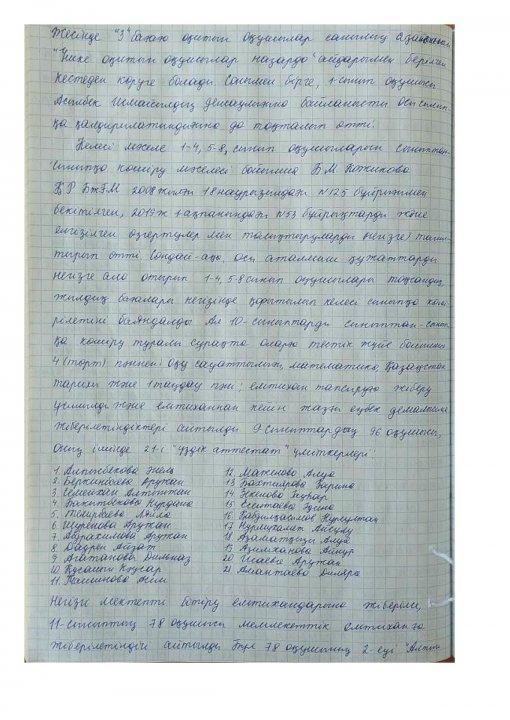 Жесінде "3" бағаға оқитын оқушылар санының азайғанын
"Үшке оқитын оқушылар назарда" айдарымен берілген
кестеден көруге болады. Сонымен бірге, 1-сынып оқушысы
Асылбек Исмаилдың денсаулығына байланысты осы сынып-
қа қалдырылатындығына да тоқталып өтті.
Келесі мәселе 1-4, 5-8, сынып оқушыларын сыныптан-
сыныпқа көшіру мәселесі бойынша Б.М Кожикова
ҚР БжҒМ 2008 жылғы 18 наурызындағы №125 бұйрығымен
бекітілген, 2019ж 1 ақпанындағы №53 бұйрықтарды және
енгізілген өзгертулер мен толықтыруларды негізге таныс-
тырып өтті. Сондай-ақ, осы аталмыш құжаттарды
негізге ала отырып 1-4, 5-8 сынып оқушылары тоқсандық,
жылдық бағалары негізінде қорытылып келесі сыныпқа көші-
рілетіні баяндалды. Ал 10-сыныптарды сыныптан-сынып-
қа көшіру туралы сұрақта оларға тестік жүйе бойынша
4 (төрт) пәннен: Оқу сауаттылығы, математика, Қазақстан
тарихы және 1 таңдау пәні; емтихан тапсыруға жіберу
ұсынылды және емтиханнан кейін жазғы еңбек демалысына
жіберілетіндіктері айтылды. 9 сыныптардың 96 оқушысы,
Оның ішінде 21-і "үздік аттестат" үміткерлері:
1. Алпысбекова Әсель
2. Беркинбаева Аружан
3. Семейхан Алтынжан
4. Бакытбекова Нурдана
5. Темирбаева Лейла
6. Шуренова Аружан
7. Абрахимова Аружан
8. Бадрен Айзат
9. Агатанова Дильназ
10. Кусаин Коусар
11. Калшинова Асем
12. Маженова Алуа
13. Бахтиярова Карина
14. Әкенова Гаухар
15. Сеитаева Әдина
16. Кабдилкасимов Нурсултан
17. Нурмухамет Айсулу
18. Азаматқызы Алуа
19. Адилханова Айнур
20. Исаева Аружан
21. Амантаева Диляра
Негізгі мектепті бітіру емтихандарына жіберілді,
11-сыныптың 78 оқушысы мемлекеттік емтиханға
жіберілетіндігі айтылды. Бұл 78 оқушының 2-еуі "Алтын